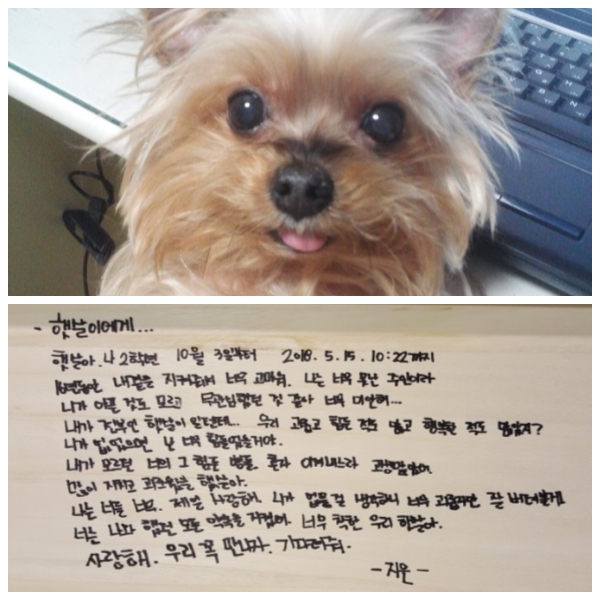 - 햇살이에게...
햇살아. 나 2학년 10월 3일부터 2018. 5. 15. 10:22까지
16년동안 내곁을 지켜줘서 너무 고마워. 나는 너무 못난 주인이라
니가 아픈 것도 모르고 무관심했던 것 같아 너무 미안해...
내가 전부인 햇살이 일텐데... 우리 고맙고 힘든 적도 많고 행복한 적도 많았지?
니가 없었으면 난 너무 힘들었을거야.
내가 모르던 너의 그 힘든 병들 혼자 이겨내느라 고생많았어.
많이 지치고 괴로웠을 햇살아.
나는 너를 너무 제일 사랑해. 니가 없을 걸 생각하니 너무 고통지만 잘 버텨볼게
너는 나와 했던 모든 약속을 지켰어. 너무 착한 우리 햇살아.
사랑해. 우리 꼭 만나자. 기다려줘.
- 지은 -